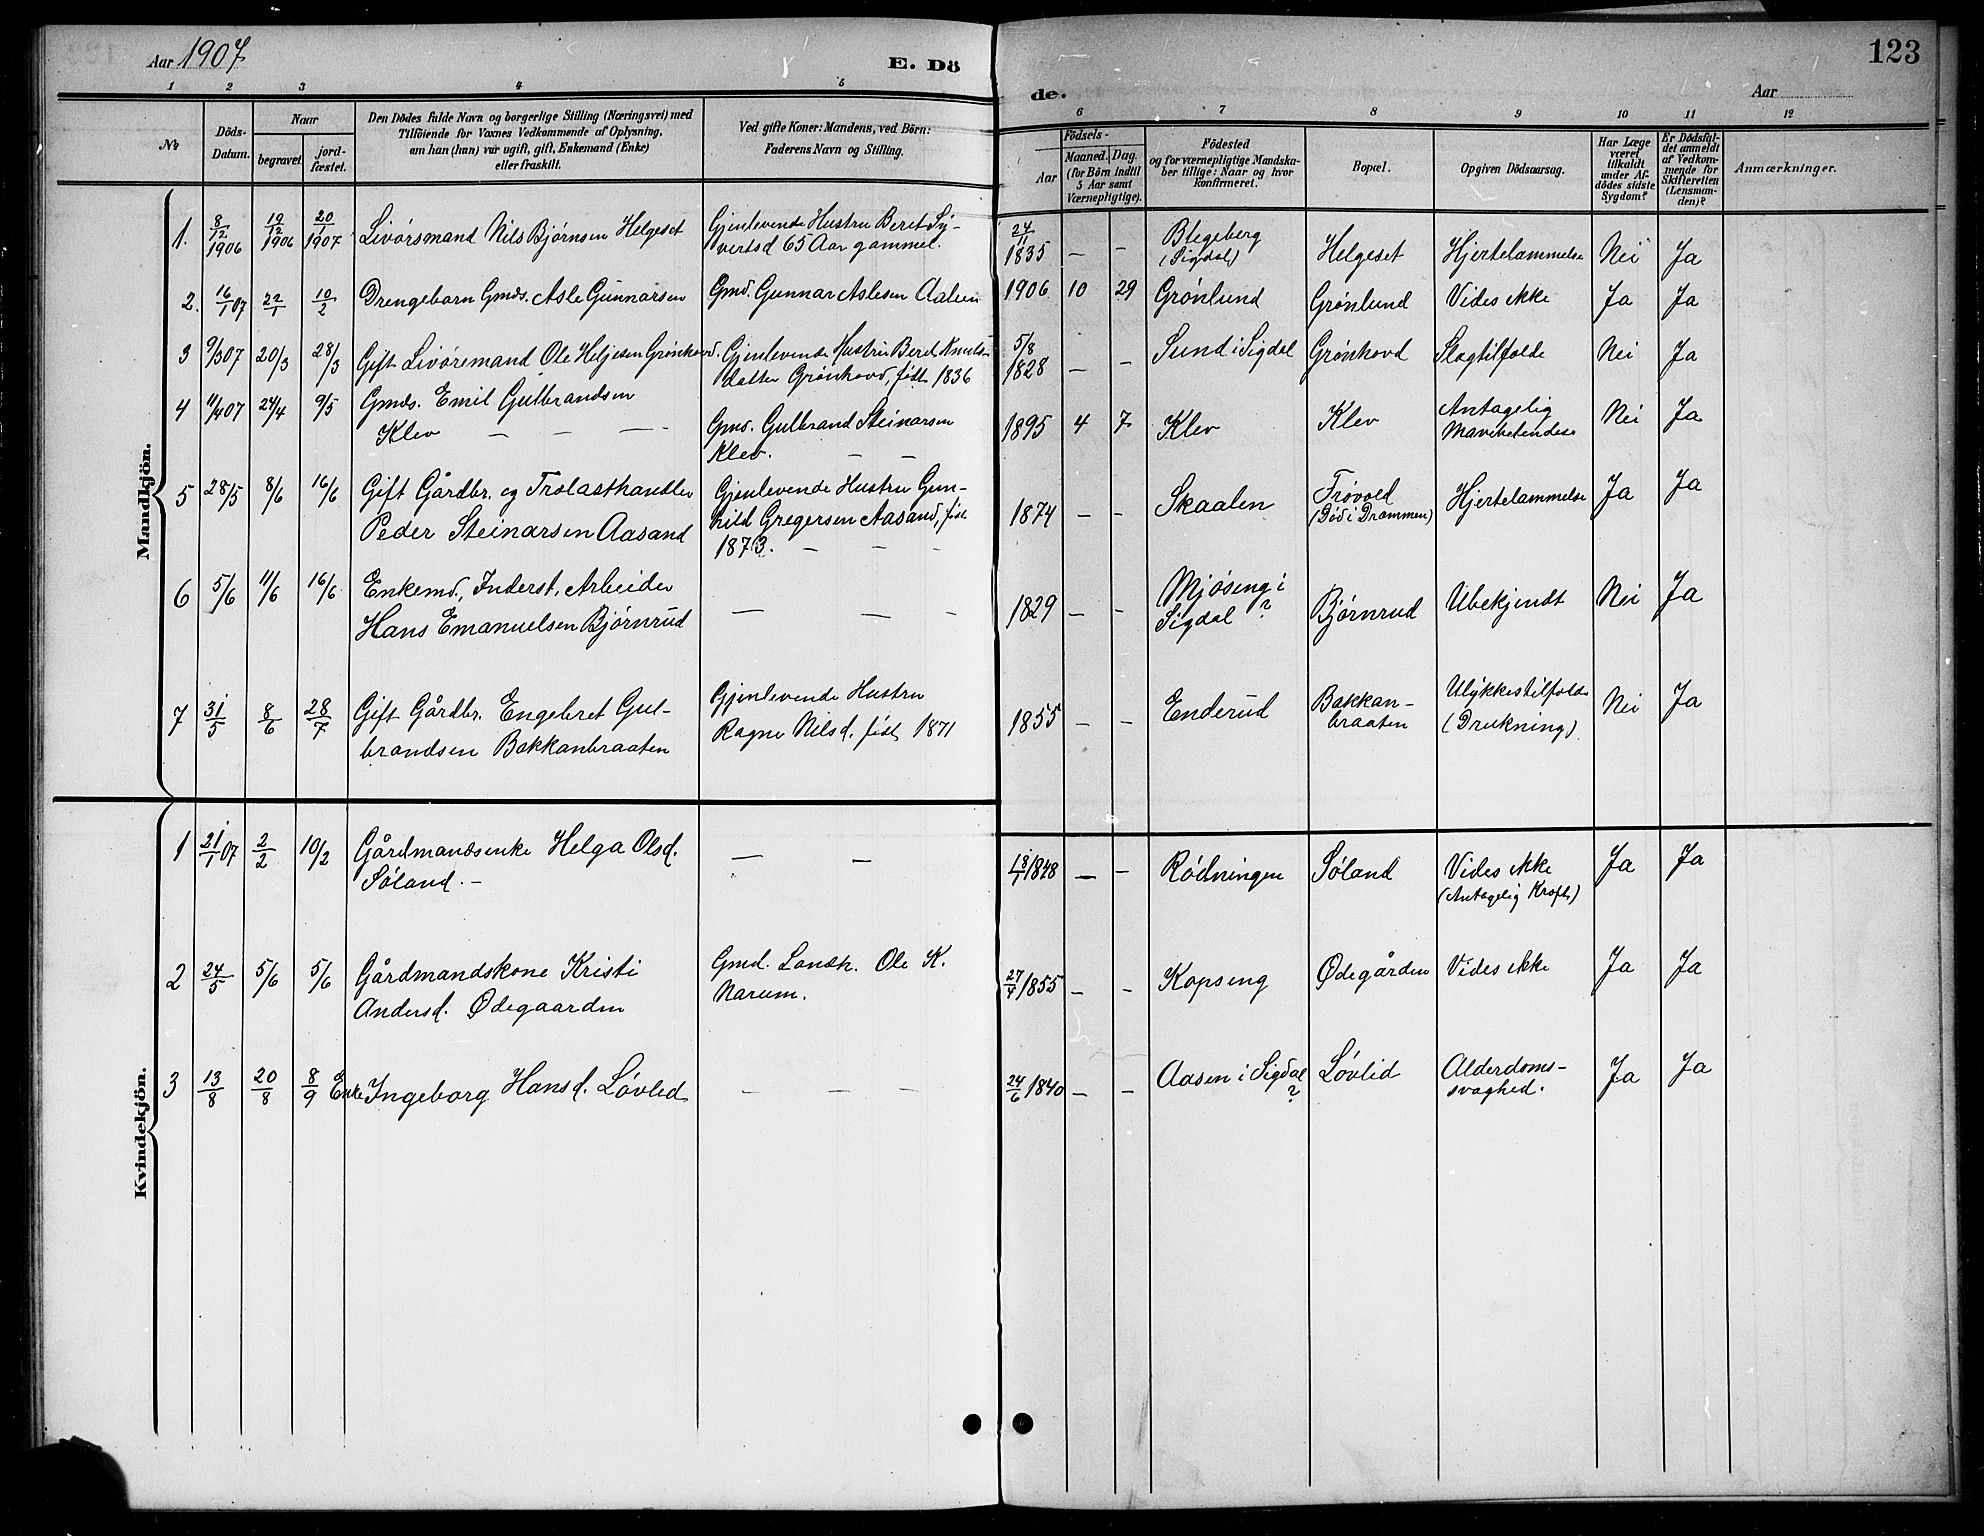 Aar 1907
E. Dö
de.
Aar
123
1 2 3 4 5
6 7 8 9 10 11 12
№
Döds-
Datum.
Naar
begravet.
jord-
fæstet.
Den Dödes fulde Navn og borgerlige Stilling (Næringsvei) med
Tilföiende for Voxnes Vedkommende af Oplysning,
om han (hun) var ugift, gift, Enkemand (Enke)
eller fraskilt.
Ved gifte Koner: Mandens, ved Börn:
Faderens Navn og Stilling.
Födsels-
Aar
Maaned. Dag.
(for Börn indtil
5 Aar samt
Værnepligtige).
Födested
og for værnepligtige Mandska-
ber tillige: Naar og hvor
konfirmeret.
Bopæl.
Opgiven Dödsaarsag.
Har Læge
været
tilkaldt
under Af-
dödes sidste
Sygdom?
Er Dödsfal-
det anmeldt
af Vedkom-
mende for
Skifteretten
(Lensman-
den)?
Anmærkninger.
Mandkjön.
1. 8/12 1906 19/12 1906 20/1 1907 Livørsmand Nils Bjørnsen Helgeset Gjenlevende Hustru Beret Sy-
vertsd 65 Aar gammel.
24/11 1835 — — (Sigdal) Helgeset Hjertelammelse Nei Ja
2. 16/1 07 22/1 10/2 Drengebarn Gmds. Asle Gunnarsen Gmd. Gunnar Aslesen Aalien
1906 10 29 Grønlund Grønlund Vides ikke Ja Ja
3 9/3 07 20/3 28/3 Gift Livøremand Ole Heljesen Grønhovd. Gjenlevende Hustru Berel Knuts-
datter Grønhovd, født 1836
5/8 1828 — — Sund i Sigdal Grønhovd Slagtilfælde Nei Ja
4 11/4 07 24/4 9/5 Gmds. Emil Gulbrandsen
Klev — — —
Gms. Gulbrand Steinarsen
Klev. — —
1895 4 7 Klev Klev Antagelig
Mavebetendese Nei Ja
5 28/5 8/6 16/6 Gift Gårdbr. og Trælasthandler
Peder Steinarsen Aasand
Gjenlevende Hustru Gun-
hild Gregersen Aasand, født
1873. — — —
1874 — — Skaalen Frøvold
(Død i Drammen) Hjertelammelse Ja Ja
6 5/6 11/6 16/6 Enkemd, Inderst, Arbeider
Hans Emanuelsen Bjørnrud
— — —
1829 — — Mjøseng i
Sigdal ? Bjørnrud Ubekjendt Nei Ja
7 31/5 8/6 28/7 Gift Gårdbr. Engebret Gul-
brandsen Bakkanbraaten
Gjenlevende Hustru
Ragne Nilsd. født 1871
1855 — — Enderud Bakkan-
braaten Ulykkestilfælde
(Drukning) Nei Ja
Kvindekjön.
1 21/1 07 2/2 10/2 Gårdmandsenke Helga Olsd.
Søland. —
— —
18/1 1848 — — Rødningen Søland Vides ikke
(Antagelig Kræft) Ja Ja
2 24/5 5/6 5/6 Gårdmandskone Kristi
Andersd. Ødegaarden
Gmd. Landh. Ole K.
Narum.
27/4 1855 — — Kopseng Ødegården Vides ikke Ja Ja
3 13/8 20/8 8/9 Enke Ingeborg Hansd. Løvlid — — —
24/6 1840 — — Aasen i Sigdal
? Løvlid Alderdoms-
svaghed. Ja Ja